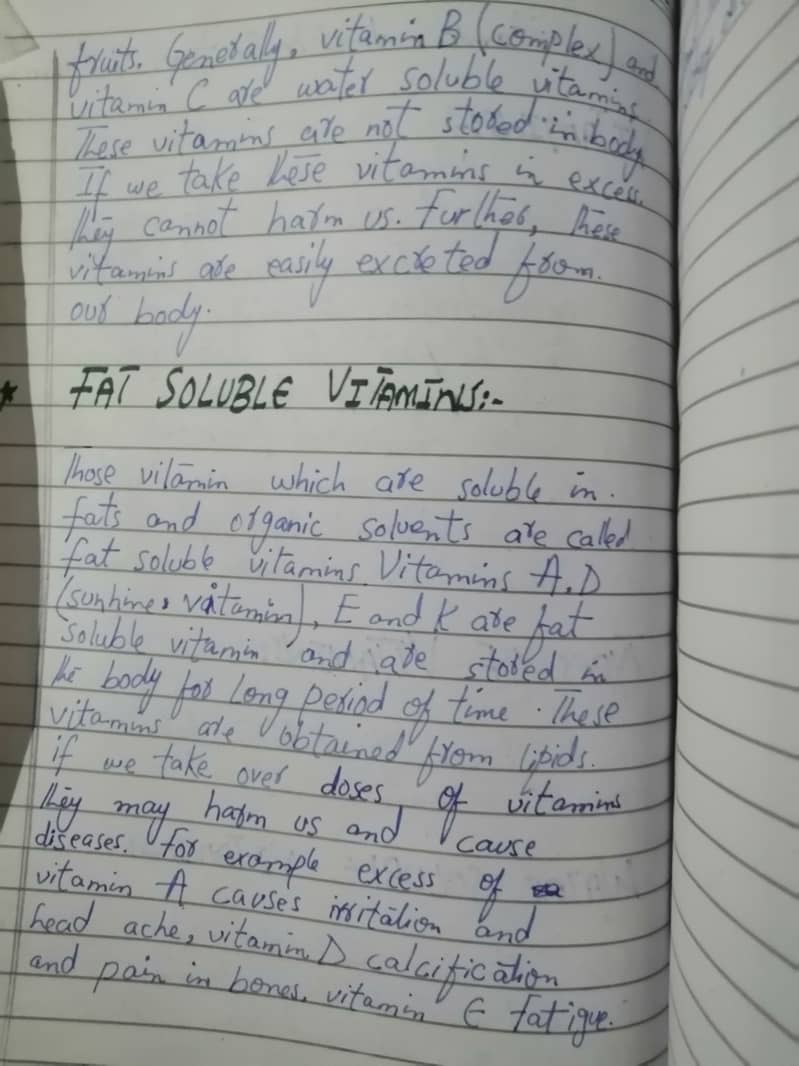 fruits. Generally, vitamin B (complex) and
vitamin C are water soluble vitamins.
These vitamins are not stored in body.
If we take these vitamins in excess.
they cannot harm us. Further, these
vitamins are easily excreted from.
our body.
* FAT SOLUBLE VITAMINS:-
Those vitamin which are soluble in.
fats and organic solvents are called
fat soluble vitamins. Vitamins A, D
(sunhine, vatamin), E and K are fat
soluble vitamin and are stored in
the body for long period of time. These
vitamins are obtained from lipids.
if we take over doses of vitamins
they may harm us and cause
diseases. For example excess of
vitamin A causes irritation and
head ache, vitamin D calcification
and pain in bones, vitamin E fatigue.